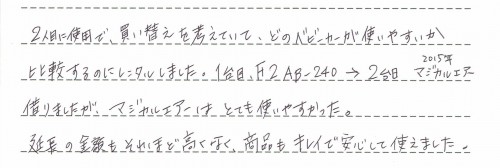 2人目に使用で、買い替えを考えていて、どのベビーカーが使いやすいか
比較するのにレンタルしました。1台目、F2 AB-240 → 2台目 2015年 マジカルエアー
借りましたが、マジカルエアーは とても使いやすかった。
延長の金額も それほど高くなく、商品も キレイで安心して使えました。